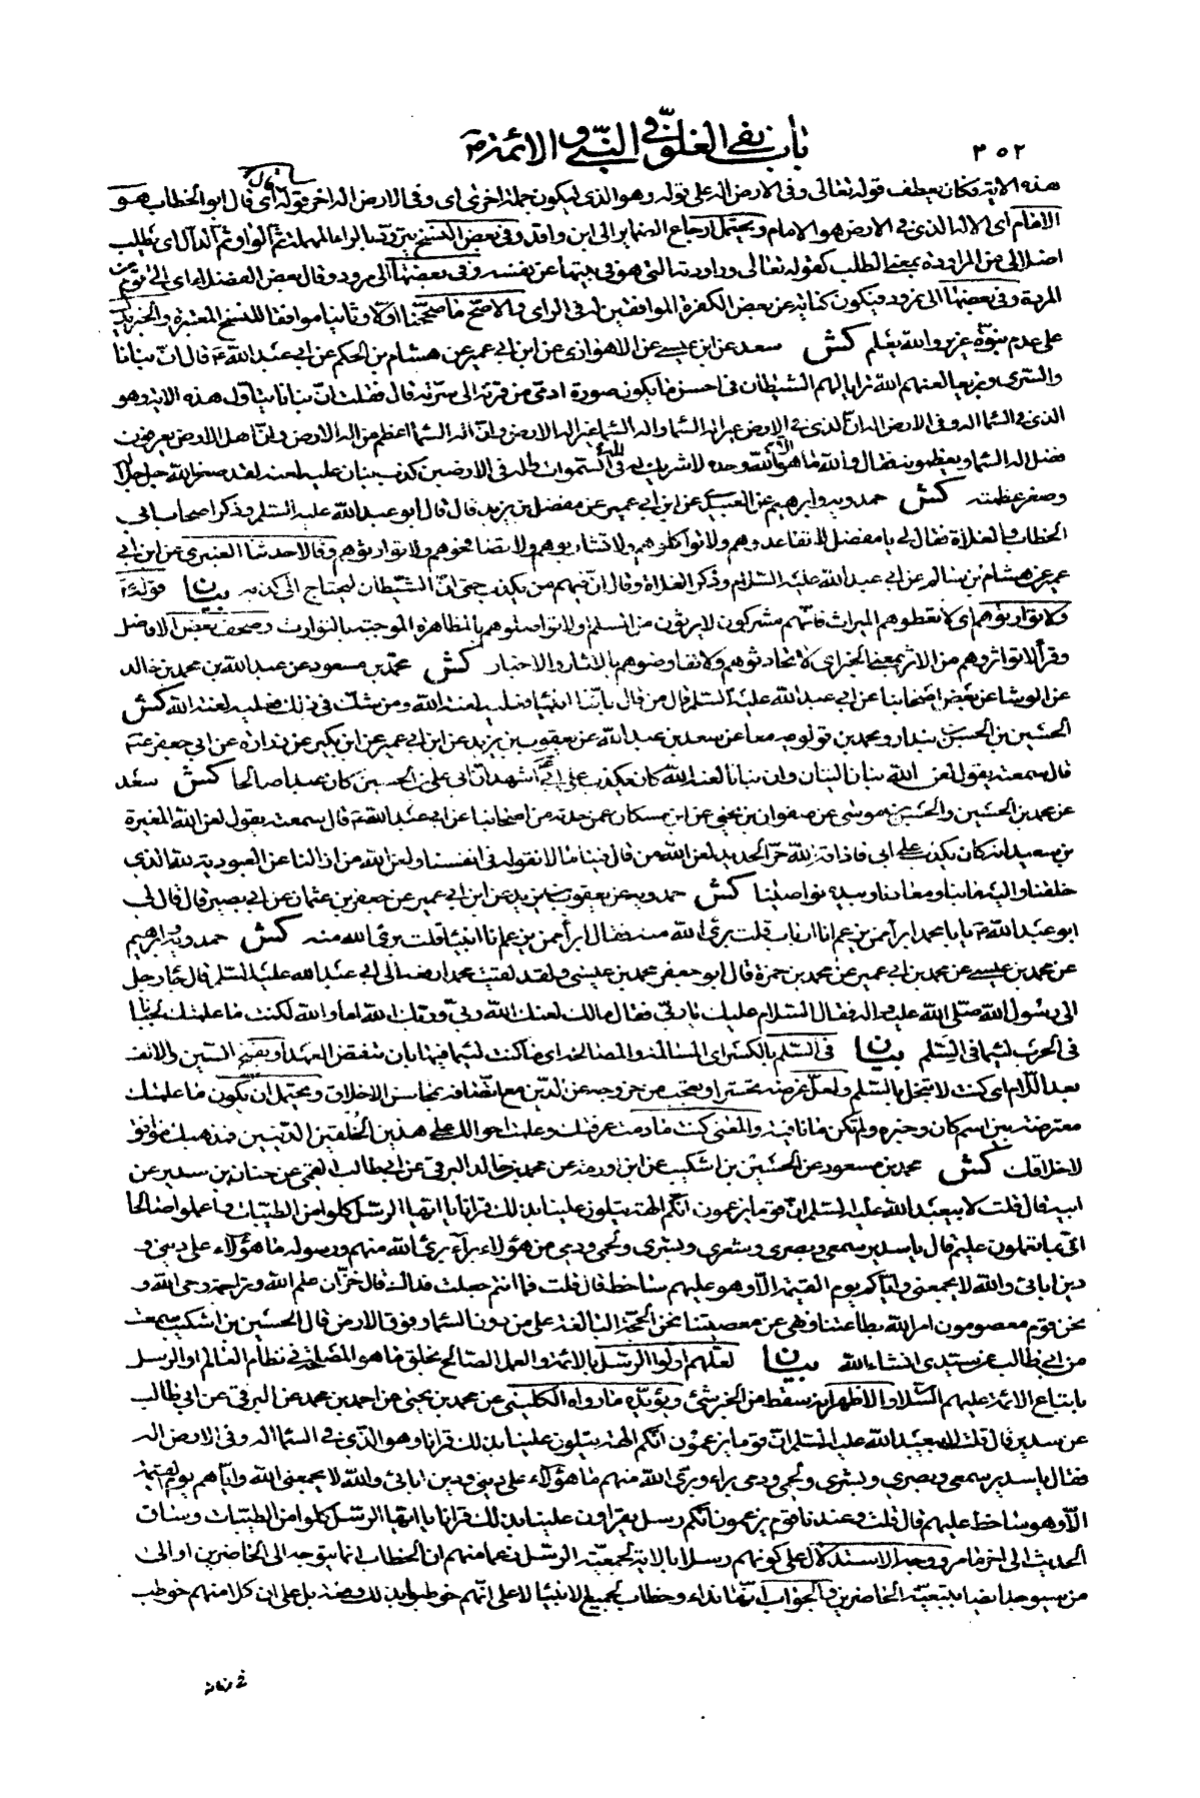 ٣٥٢ باب نفى الغلوّ فى النبىّ و الائمة ع
هذه الاية فكان يعطف قوله تعالى وفى الارض اله على قوله وهو الذى ليكون جملة اخرى اى وفى الارض اله اخر قوله اى قال ابو الخطاب هو
الامام اى الاله الذى فى الارض هو الامام ويحتمل ارجاع الضماير الى ابن واقد وفى بعض النسخ بتقديم الراء المهملة ثم الواو ثم الدال اى يطلب
اضلالى من المراودة بمعنى الطلب كقوله تعالى وراودته التى هو فى بيتها عن نفسه وفى بعضها الى مرود وقال بعض الفضلاء اى الى قوم من
المردة وفى بعضها الى نمرود فيكون كناية عن بعض الكفرة الموافقين له فى الراى والاصح ما صححنا اولا وثانيا موافقا للنسخ المعتبرة والخبر يدل
على عدم نبوّة عزير والله يعلم كش سعد عن ابن عيسى عن الاهوازى عن ابن ابى عمير عن هشام بن الحكم عن ابى عبد الله ع قال انّ بنانا
والسرى وبزيعا لعنهم الله ترايا لهم الشيطان فى احسن ما يكون صورة ادمى من قرنه الى سرته قال فقلت انّ بنانا يتاول هذه الاية وهو
الذى فى السماء اله وفى الارض اله انّ الذى فى الارض غير اله السماء واله السماء غير اله الارض وانّ اله السماء اعظم من اله الارض وانّ اهل الارض يعرفون
فضل اله السماء ويعظمونه فقال والله ما هو الا الله وحده لا شريك له اله فى السموات واله فى الارضين كذب بنان عليه لعنة الله لقد صغر الله جل جلاله
وصغر عظمته كش حمدويه وابرهيم عن العبيدى عن ابن ابى عمير عن مفضل بن يزيد قال قال ابو عبد الله عليه السلم وذكر اصحاب ابى
الخطاب والغلاة فقال لى يا مفضل لا تقاعدوهم ولا تواكلوهم ولا تشاربوهم ولا تصافحوهم ولا توارثوهم وقالا حدثنا العبيدى عن ابن ابى
عمير عن هشام بن سالم عن ابى عبد الله عليه السلام وذكر الغلاة وقال انّ فيهم من يكذب حتى انّ الشيطان ليحتاج الى كذبه بيان قوله ع
ولا توارثوهم اى لا تعطوهم الميراث فانّهم مشركون لا يرثون من المسلم او لا تواصلوهم بالمظاهرة الموجبة للتوارث وصحف بعض الافاضل
وقرأ لا تواثروهم من الاثر بمعنى الخبر اى لا تحادثوهم ولا تفاوضوهم بالاثار والاخبار كش محمد بن مسعود عن عبد الله بن محمد بن خالد
عن الوشا عن بعض اصحابنا عن ابى عبد الله عليه السلم قال من قال باننا انبياء فعليه لعنة الله ومن شك فى ذلك فعليه لعنة الله كش
الحسين بن الحسن بن بندار ومحمد بن قولويه معا عن سعد بن عبد الله عن يعقوب بن يزيد عن ابن ابى عمير عن ابن بكير عن زرارة عن ابى جعفر ع
قال سمعته يقول لعن الله بنان البنان وان بنانا لعنه الله كان يكذب على ابى اشهد ان ابى على بن الحسين كان عبدا صالحا كش سعد
عن محمد بن الحسين والحسن بن موسى عن صفوان بن يحيى عن ابن مسكان عمن حدثه من اصحابنا عن ابى عبد الله ع قال سمعته يقول لعن الله المغيرة
بن سعيد انه كان يكذب على ابى فاذاقه الله حرّ الحديد لعن الله من قال فينا ما لا نقوله فى انفسنا ولعن الله من ازالنا عن العبودية لله الذى
خلقنا واليه مابنا ومعادنا وبيده نواصينا كش حمدويه عن يعقوب بن يزيد عن ابن ابى عمير عن جعفر بن عثمان عن ابى بصير قال قال لى
ابو عبد الله ع يا با محمد ابرأ ممن يزعم انا ارباب قلت برئ الله منه فقال ابرأ ممن يزعم انا انبياء قلت برئ الله منه كش حمدويه وابرهيم
عن محمد بن عيسى عن محمد بن ابى عمير عن محمد بن حمزة قال ابو جعفر محمد بن عيسى ولقد لقيت محمدا رفعه الى ابى عبد الله عليه السلم قال جاء رجل
الى رسول الله صلى الله عليه واله فقال السلام عليك يا ربى فقال مالك لعنك الله ربى وربك الله اما والله لكنت ما علمتك لجبانا
فى الحرب لئيما فى السلم بيان فى السلم بالكسر اى المسالمة والمصالحة اى ما كنت لئيما فيها بان تنقض العهد او بفتح السين والانف
بعد اللام اى كنت لا تبخل بالسلم ولعل غرضه تحسر او تعجب من خروجه عن الدين مع اتصافه بمحاسن الاخلاق ويحتمل ان يكون ما علمتك
معترضة بين اسم كان وخبره ولم تكن ما نافية والمعنى كنت ما دمت عرفتك وعلمت احوالك على هذين الخلقين الدنيين فمذهبك موافق
لاخلاقك كش محمد بن مسعود عن الحسين بن اشكيب عن ابن اورمه عن محمد بن خالد البرقى عن ابى طالب القمى عن حنان بن سدير عن
ابيه قال قلت لابى عبد الله عليه السلم انّ قوما يزعمون انكم الهة يتلون علينا بذلك قرانا يا ايها الرسل كلوا من الطيبات واعملوا صالحا
انى بما تعملون عليم قال يا سدير سمعى وبصرى وشعرى وبشرى ولحمى ودمى من هؤلاء برآء برئ الله منهم ورسوله ما هؤلاء على دينى و
دين ابائى والله لا يجمعنى واياهم يوم القيمة الا وهو عليهم ساخط قال قلت فما انتم جعلت فداك قال خزّان علم الله وتراجمة وحى الله و
نحن قوم معصومون امر الله بطاعتنا ونهى عن معصيتنا نحن الحجة البالغة على من دون السماء وفوق الارض قال الحسين بن اشكيب سمعت
من ابى طالب عن سدير انشاء الله بيان لعلهم اولوا الرسل بالائمة والعمل الصالح بخلق ما هو المصلحة فى نظام العالم او الرسل
باتباع الائمة عليهم السلام والاظهر انه سقط من الخبر شئ ويؤيده ما رواه الكلينى عن محمد بن يحيى عن احمد بن محمد عن البرقى عن ابى طالب
عن سدير قال قلت لابى عبد الله عليه السلم انّ قوما يزعمون انكم الهة يتلون علينا بذلك قرانا وهو الذى فى السماء اله وفى الارض اله
فقال يا سدير سمعى وبصرى وبشرى ولحمى ودمى براء وبرئ الله منهم ما هؤلاء على دينى ودين ابائى والله لا يجمعنى الله واياهم يوم القيمة
الا وهو ساخط عليهم قال قلت وعندنا قوم يزعمون انكم رسل يقراون علينا بذلك قرانا يا ايها الرسل كلوا من الطيبات وساق
الحديث الى اخر ما مر ووجه الاستدلال على كونهم رسلا بالاية لجمعية الرسل زعما منهم ان الخطاب انما يتوجه الى الحاضرين او الى
من سيوجد ايضا بتبعية الحاضرين والجواب انها نداء وخطاب لجميع الانبيا لا على انهم خوطبوا بذلك دفعة بل على ان كلا منهم خوطب
فى زمانه